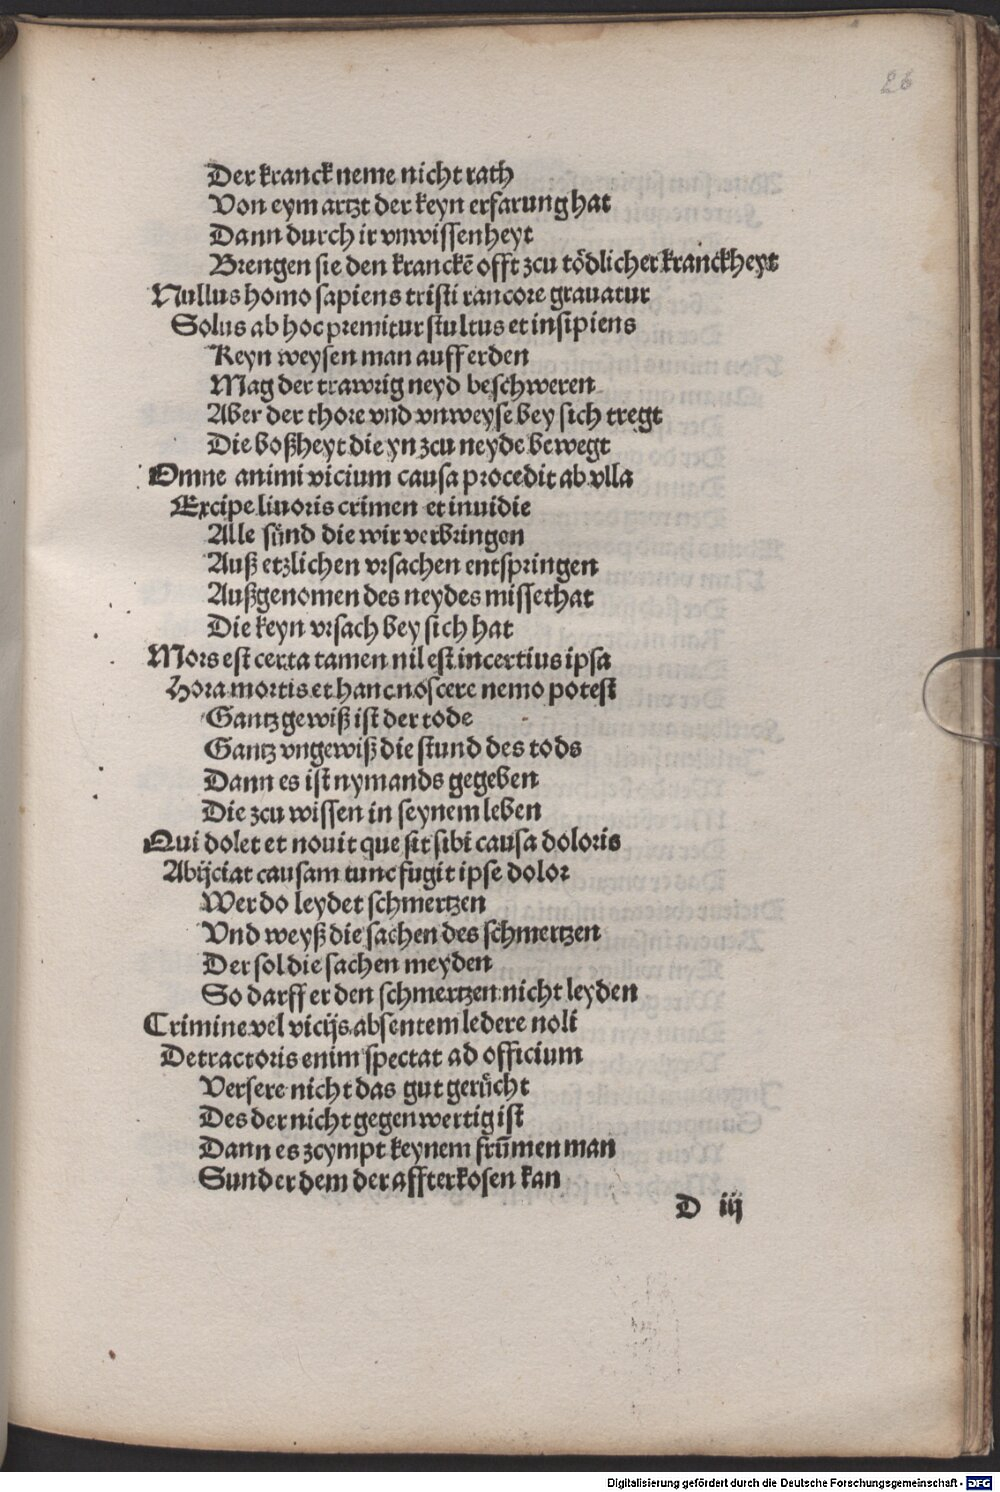 26
Der kranck neme nicht rath
Von eym artzt der keyn erfarung hat
Dann durch ir vnwissenheyt
Brengen sie den kranckē offt zcu tödlicher kranckheyt
Nullus homo sapiens tristi rancore grauatur
Solus ab hoc premitur stultus et insipiens
Keyn weysen man auff erden
Mag der trawrig neyd beschweren
Aber der thore vnd vnweyse bey sich tregt
Die boßheyt die yn zcu neyde bewegt
Omne animi vicium causa procedit ab vlla
Excipe liuoris crimen et inuidie
Alle sünd die wir verbringen
Auß etzlichen vrsachen entspringen
Außgenomen des neydes missethat
Die keyn vrsach bey sich hat
Mors est certa tamen nil est incertius ipsa
Hora mortis et hanc noscere nemo potest
Gantz gewiß ist der tode
Gantz vngewiß die stund des tods
Dann es ist nymands gegeben
Die zcu wissen in seynem leben
Qui dolet et nouit que sit sibi causa doloris
Abijciat causam tunc fugit ipse dolor
Wer do leydet schmertzen
Vnd weyß die sachen des schmertzen
Der sol die sachen meyden
So darff er den schmertzen nicht leyden
Crimine vel vicijs absentem ledere noli
Detractoris enim spectat ad officium
Versere nicht das gut gerücht
Des der nicht gegenwertig ist
Dann es zcympt keynem frūmen man
Sunder dem der affterkosen kan
D iij
Digitalisierung gefördert durch die Deutsche Forschungsgemeinschaft - DFG